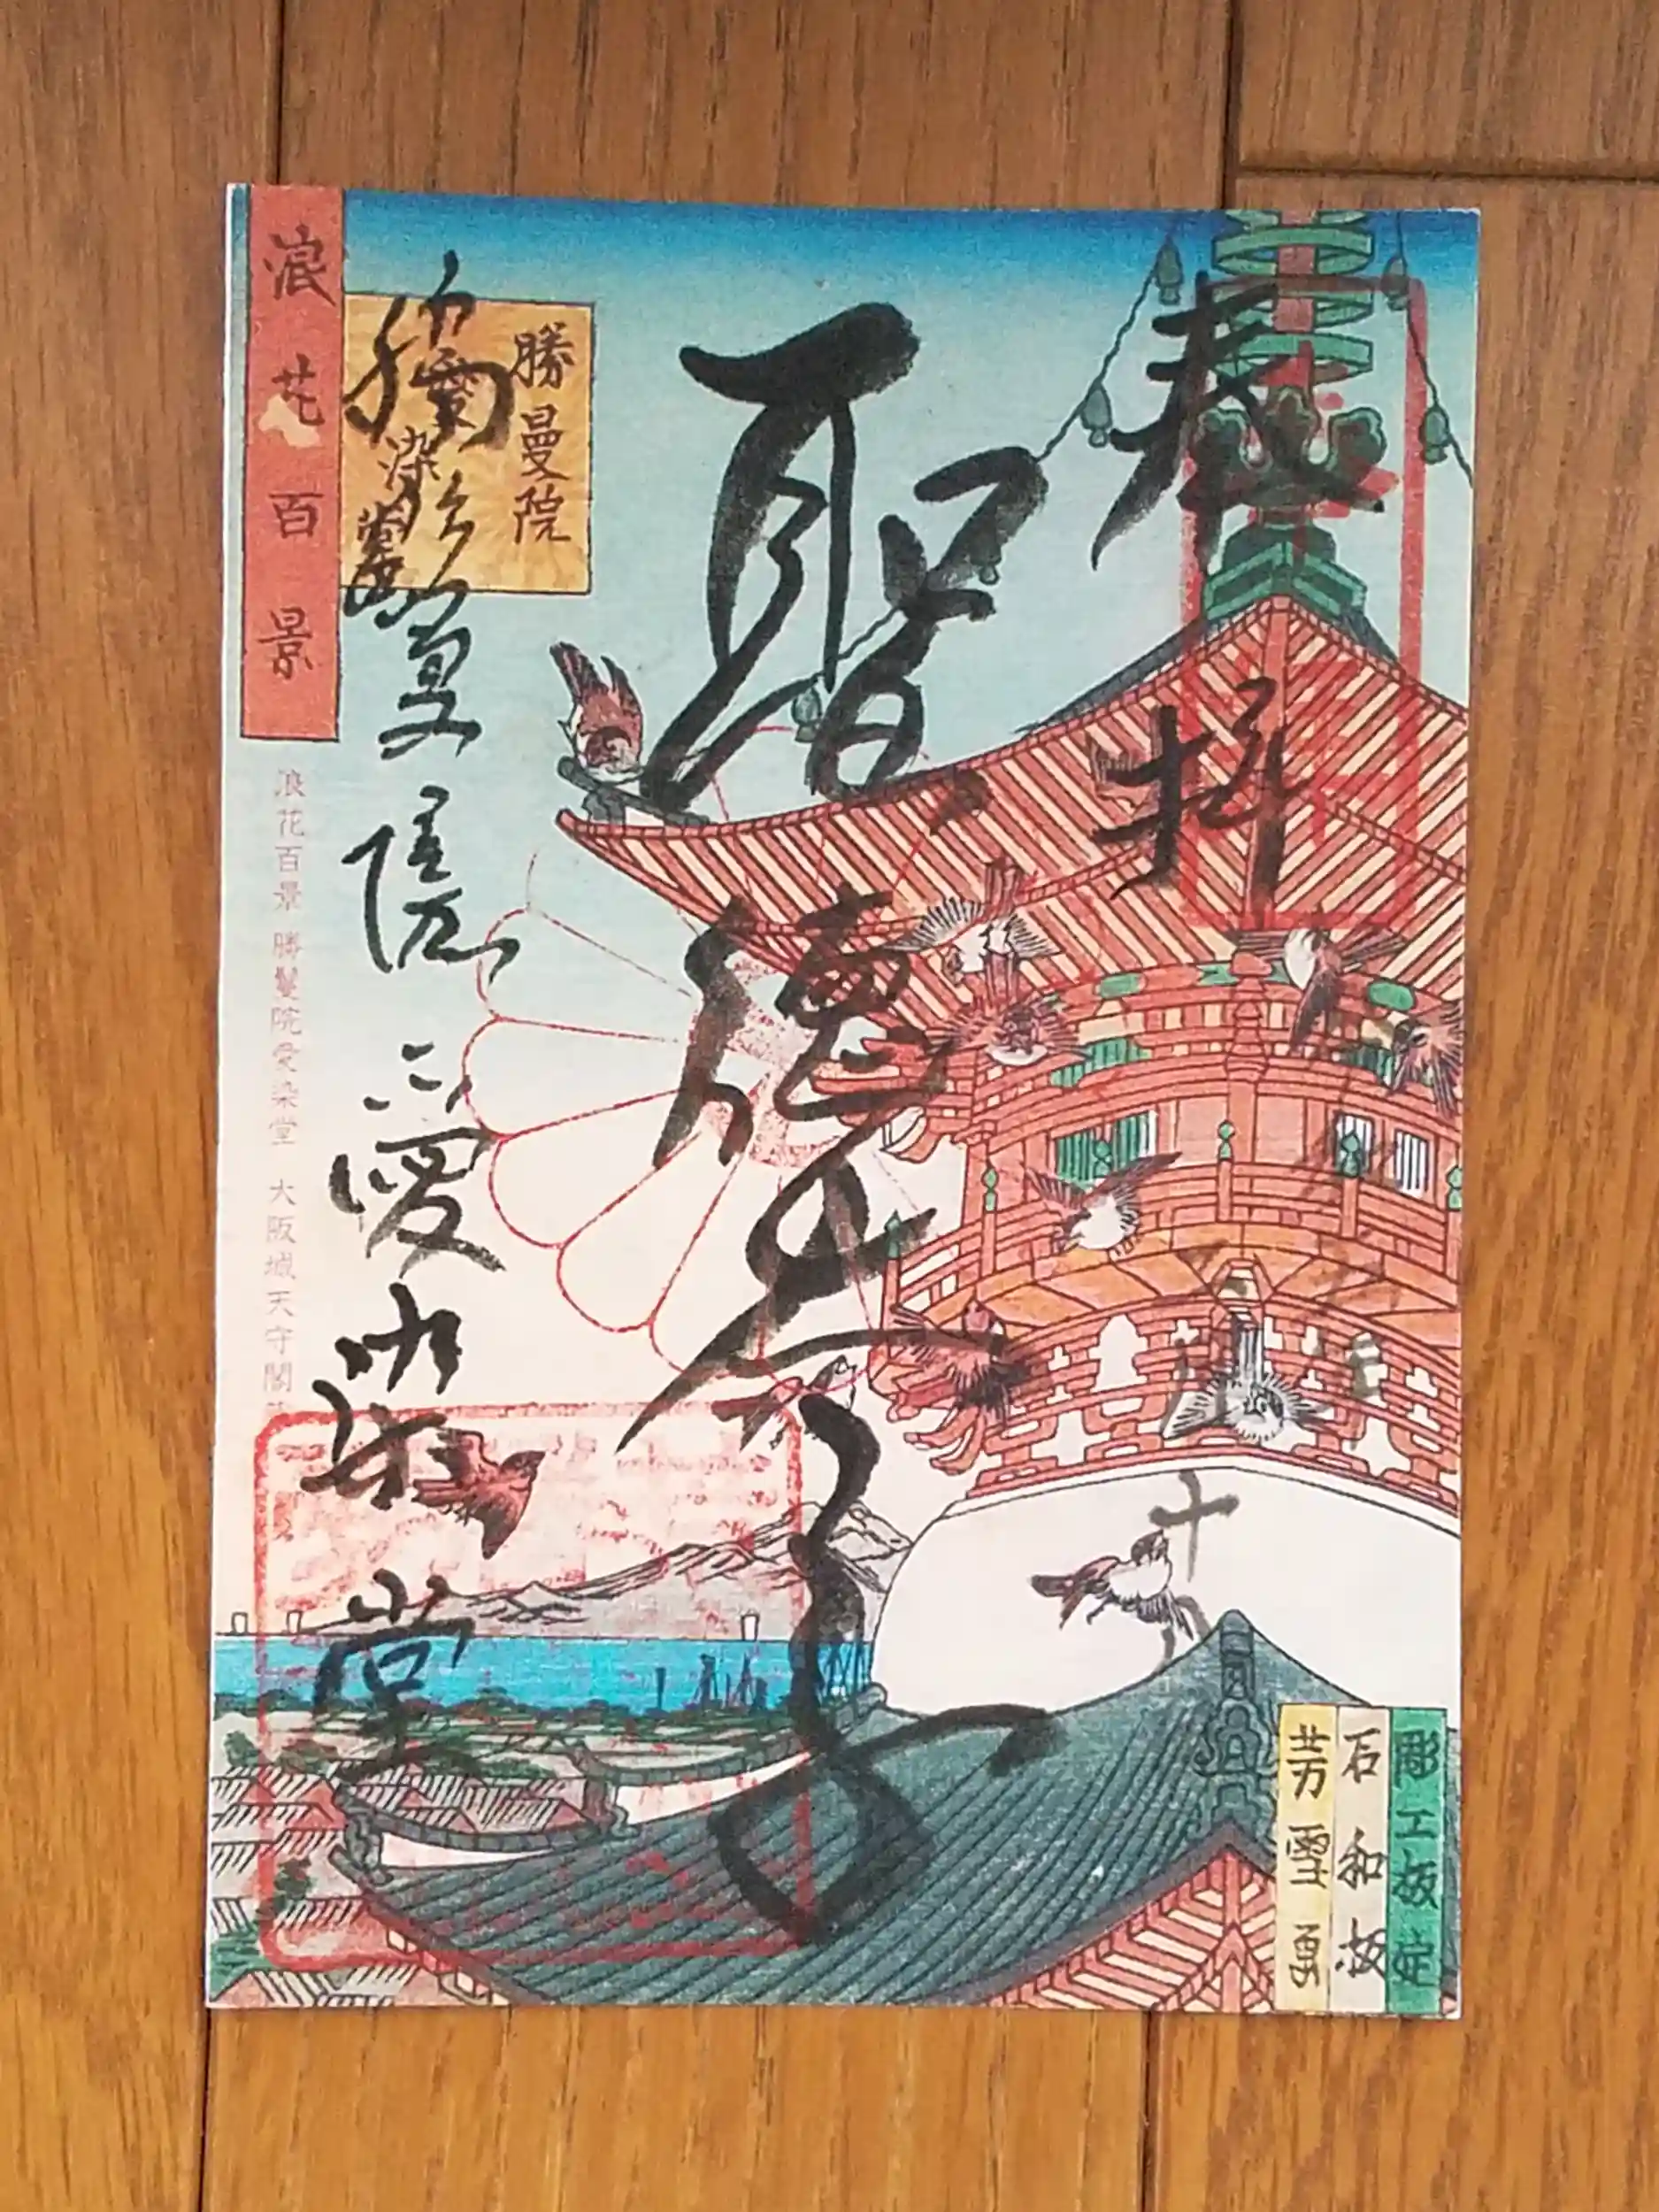 奉拝
聖徳太子
勝鬘院 愛染堂
勝曼院
浪花百景
浪花百景 勝鬘院愛染堂 大阪城天守閣
彫工板定
石和板
芳雪画